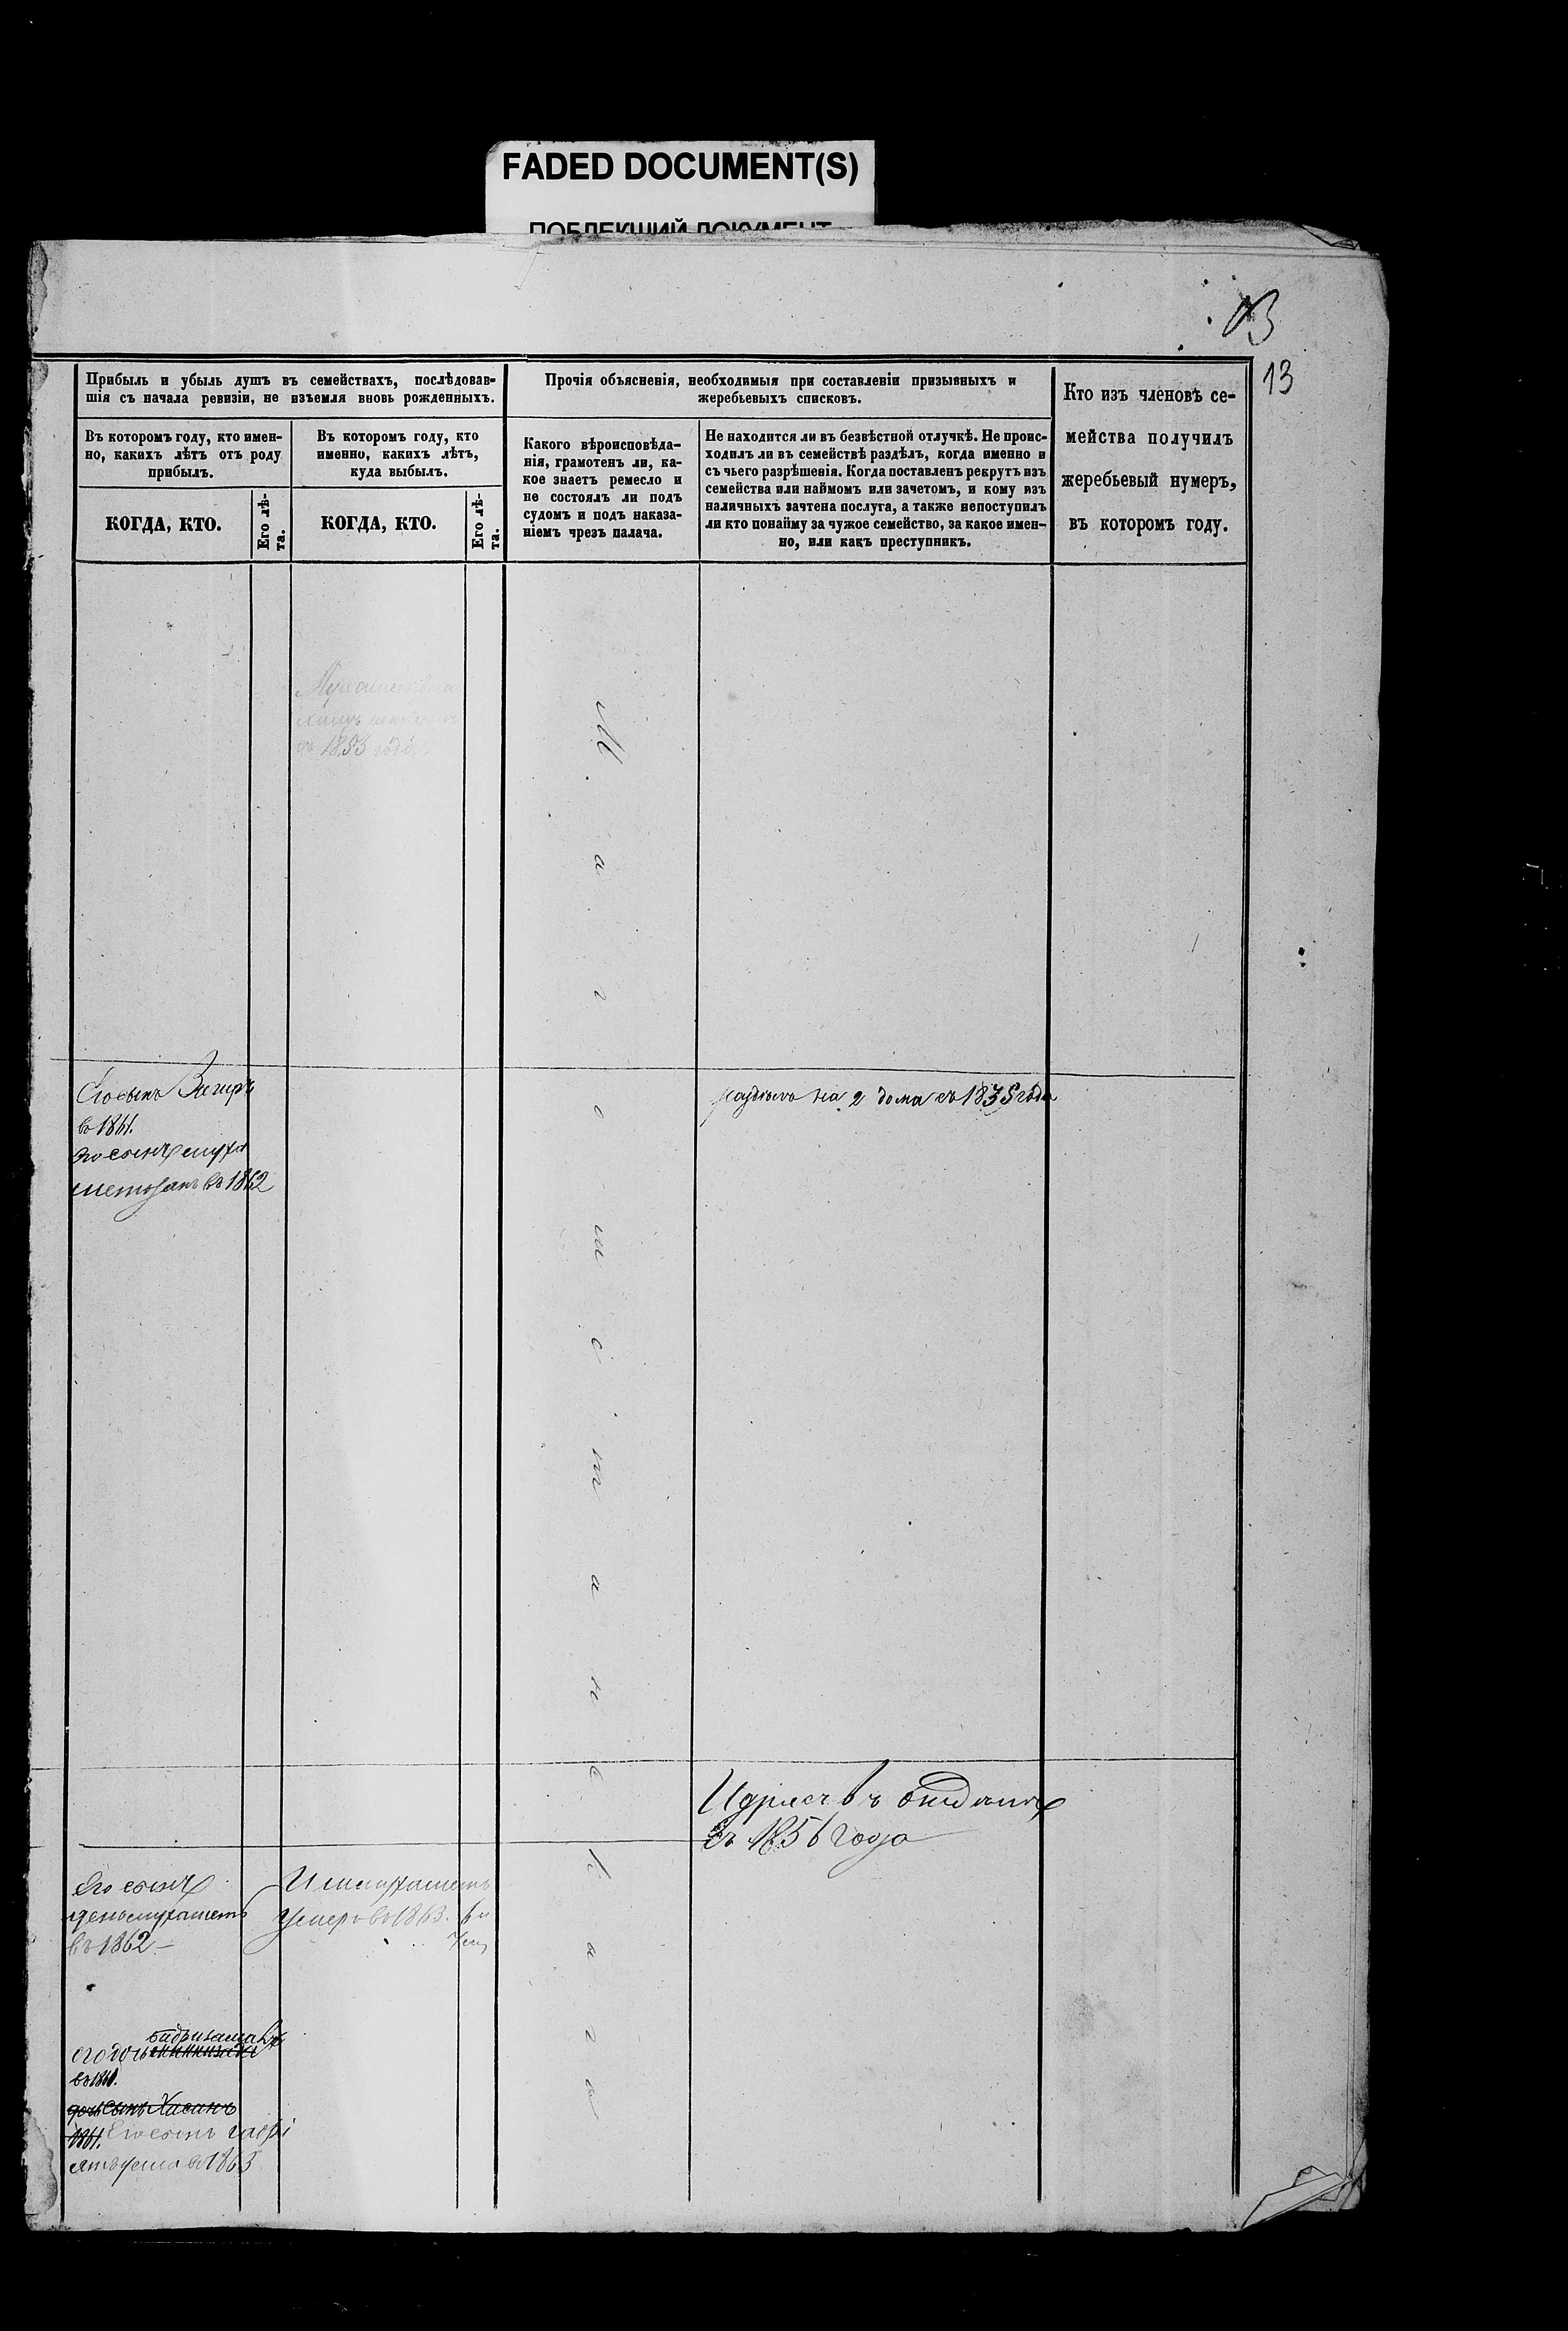 FADED DOCUMENT(S)
ПОБЛЕКШИЙ ДОКУМЕНТ
13
Прибыль и убыль душъ въ семействахъ, послѣдовав-
шія съ начала ревизіи, не изъемля вновь рожденныхъ.
Прочія объясненія, необходимыя при составленіи призывныхъ и
жеребьевыхъ списковъ.
Кто изъ членовъ се-
мейства получилъ
жеребьевый нумеръ,
въ которомъ году.
Въ которомъ году, кто имен-
но, какихъ лѣтъ отъ роду
прибылъ.
Въ которомъ году, кто
именно, какихъ лѣтъ,
куда выбылъ.
Какого вѣроисповѣда-
нія, грамотенъ ли, ка-
кое знаетъ ремесло и
не состоялъ ли подъ
судомъ и подъ наказа-
ніемъ чрезъ палача.
Не находится ли въ безвѣстной отлучкѣ. Не проис-
ходилъ ли въ семействѣ раздѣлъ, когда именно и
съ чьего разрѣшенія. Когда поставленъ рекрутъ изъ
семейства или наймомъ или зачетомъ, и кому изъ
наличныхъ зачтена послуга, а также непоступилъ
ли кто понайму за чужое семейство, за какое имен-
но, или какъ преступникъ.
КОГДА, КТО.
Его лѣ-
та.
КОГДА, КТО.
Его лѣ-
та.
въ 1853 году.
Магометанскаго
Его сынъ Загиръ
въ 1861.
Его сынъ муха
метжанъ въ 1862
на 2 дома съ 1835 года
Идрисъ въ
съ 1856 года
Его сынъ
въ 1862 –
умеръ въ 1863.
его дочь
сынъ Хасанъ
1861. Его сынъ
въ 1865